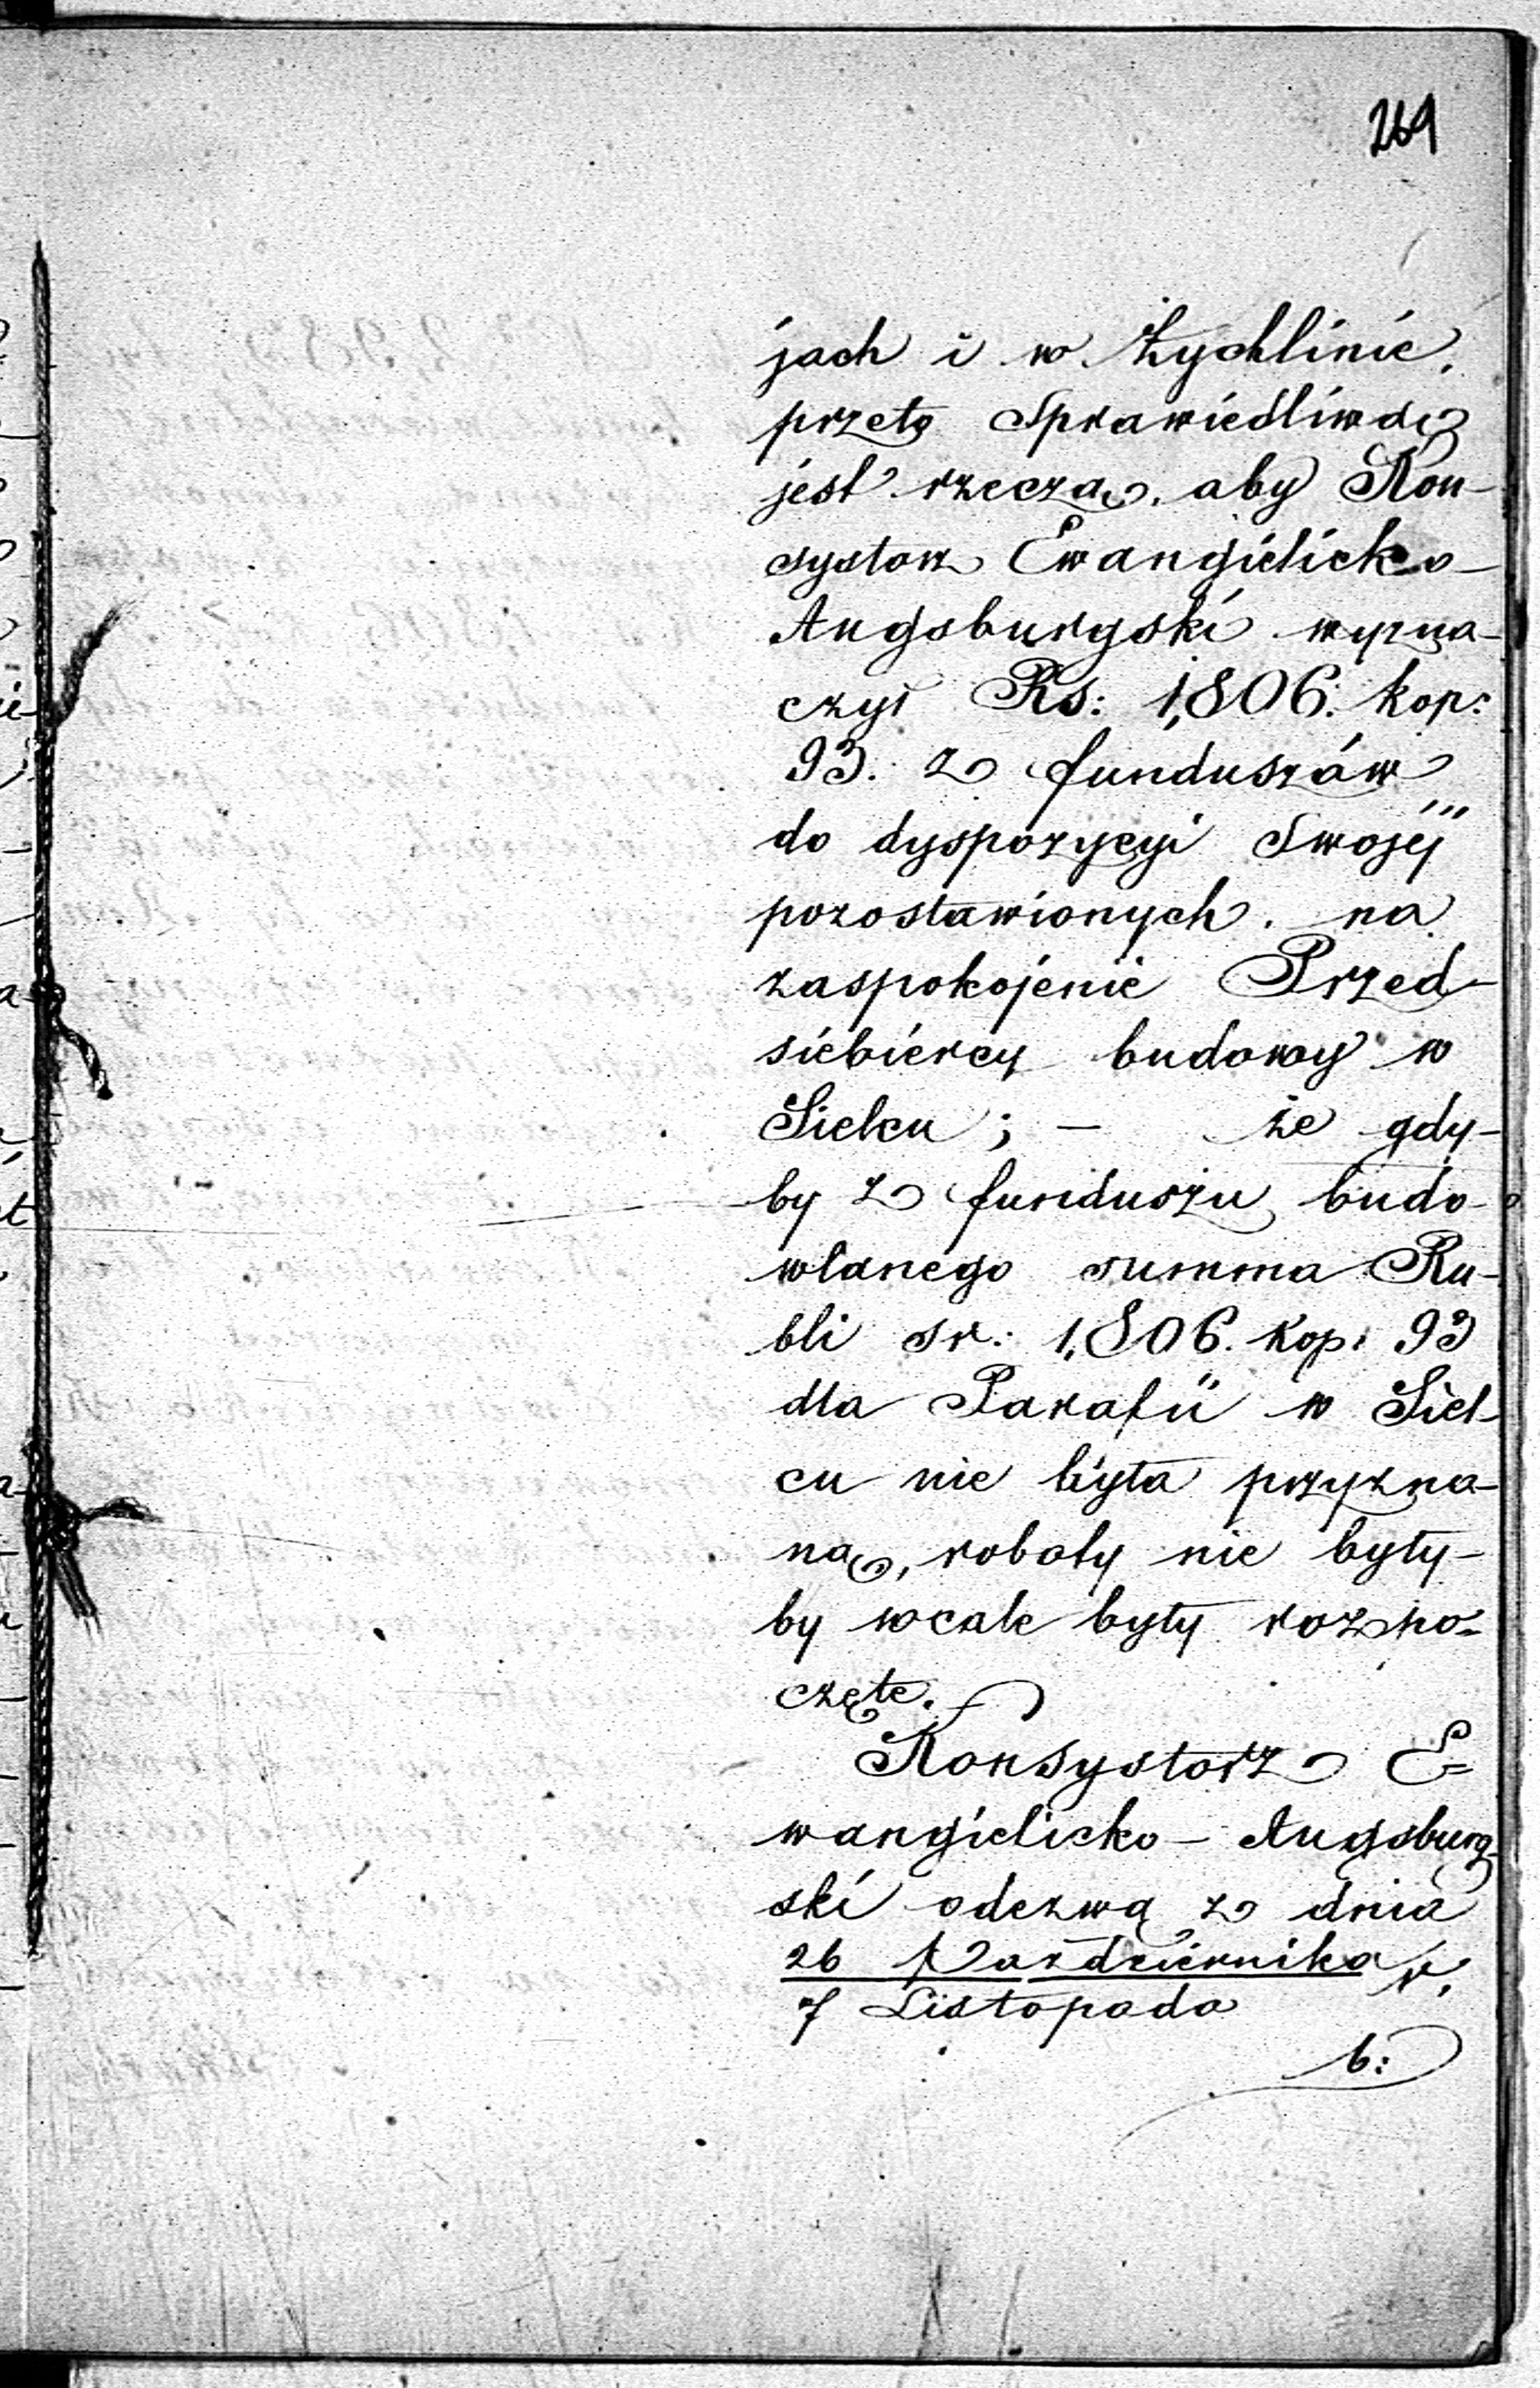 269
jach i w Żychlinie,
przeto Sprawiedliwą
jest rzeczą, aby Kon-
systorz Ewangielicko-
Augsburgski wyzna-
czył Rs: 1,806. kop:
93. z funduszów
do dyspozycyi Swojéj
pozostawionych, na
zaspokojenie Przed-
siebiercy budowy w
Sielcu ; — że gdy-
by z funduszu budo-
wlanego summa Ru-
bli sr: 1,806. kop: 93
dla Parafii w Siel-
cu nie była przyzna-
ną, roboty nie były-
by wcale były rozpo-
częte.
Konsystorz E=
wangielicko - Augsburg-
ski odezwą z dnia
26 Października r.
7 Listopada
b: